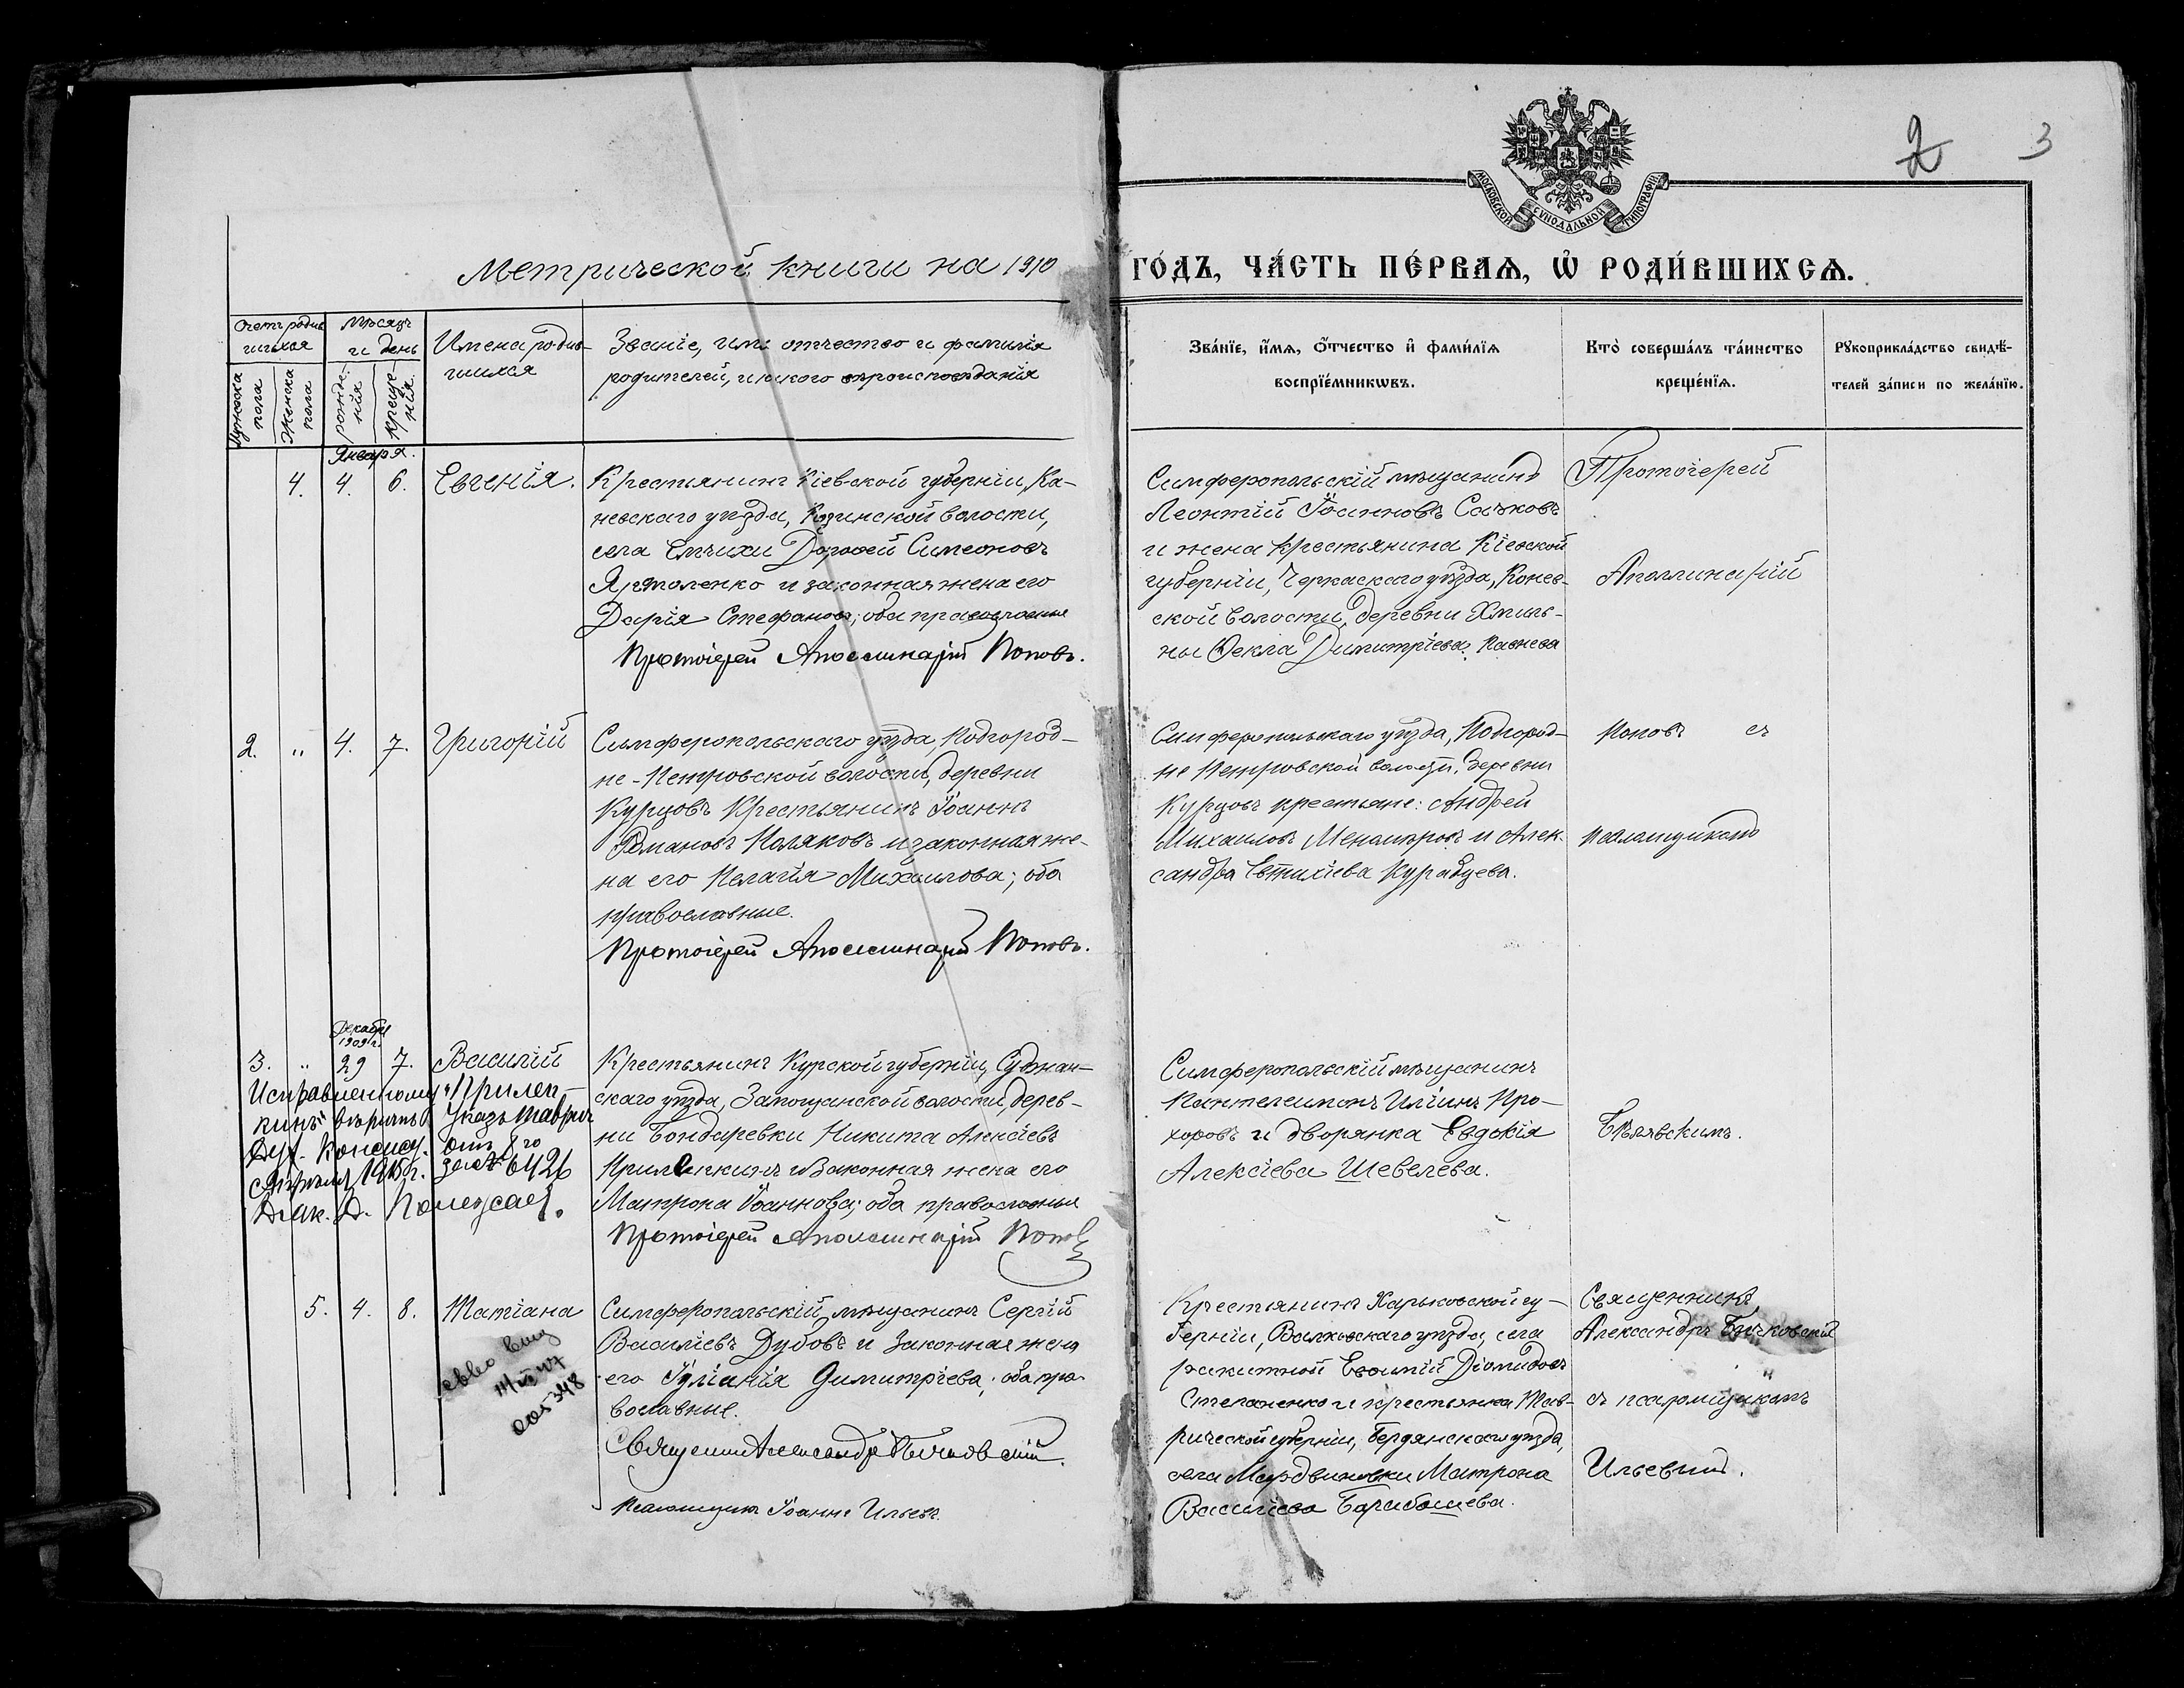 2 3
МОСКОВСКОЙ СѴНОДАЛЬНОЙ ТИПОГРАФІИ
Метрической книги на 1910 го́дъ, ча́сть пе́рваѧ, ѡ҆ роди́вшихсѧ.
Счетъ родив
шихся
Мужеска
пола
Женска
пола
Мѣсяцъ
и день
рожде-
нія
креще-
нія.
Имена родив-
шихся
Званіе, имя отчество и фамилія
родителей, и какого вѣроисповѣданія
Зва́нїе, и҆́мѧ, ѻ҆́тчество и҆ фами́лїѧ
воспрїе́мникѡвъ.
Кто̀ соверша́лъ та́инство
креще́нїѧ.
Рꙋкоприкла́дство свидѣ́-
телей за́писи по жела́нїю.
Января.
4. 4. 6. Евгенія.
Крестьянинъ Кіевской губерніи, Ка-
невскаго уѣзда, Козинской волости,
села Емчихи Дорофей Симеоновъ
Ярмоленко и законная жена его
Дарія Стефанова; оба православные
Протоіерей Аполлинарій Поповъ.
Симферопольскій мѣщанинъ
Леонтій Іоанновъ Сачковъ
и жена крестьянина Кіевской
губерніи, Черкаскаго уѣзда,
ской волости, деревни Хмиль-
ны Ѳекла Димитріева
Протоіерей
Аполлинарій
2. " 4. 7. Григорій
Симферопольскаго уѣзда, Подгород-
не-Петровской волости, деревни
Курцовъ Крестьянинъ Іоаннъ
Романовъ Поляковъ и законная же-
на его Пелагія Михаилова; оба
православные.
Протоіерей Аполлинарій Поповъ.
Симферопольскаго уѣзда, Подгород-
не Петровской волости, деревни
Курцовъ крестьяне: Андрей
Михаиловъ и Алек-
сандра Евтихіева
Поповъ съ
псаломщикомъ
Декабря
1909 г.
3. " 29 7. Василій
Исправленному "Прилеп-
кинъ" вѣрить Указъ Таврич
Дух. Консист. отъ 8 го
Апрѣля 1915 г. за № 6426
Діак.
Крестьянинъ Курской губерніи, Суджан-
скаго уѣзда, Замощанской волости, дерев-
ни Бондаревки Никита Алексіевъ
Прилепкинъ и Законная жена его
Матрона Іоаннова; оба православные
Протоіерей Аполлинарій Поповъ
Симферопольскій мѣщанинъ
Пантелеимонъ Иліинъ Про-
хоровъ и дворянка Евдокія
Алексіева Шевелева.
Бѣлявскимъ.
5. 4. 8. Татіана
Симферопольскій мѣщанинъ Сергій
Василіевъ Дубовъ и Законная жена
его Іуліанія Димитріева; оба пра-
вославные.
Александр
Псаломщикъ Іоаннъ Ильевъ.
Крестьянинъ Харьковской гу-
берніи, Валковскаго уѣзда, села
ракитной Евѳимій Діомидовъ
Степаненко и крестьянка Тав-
рической губерніи, Бердянскаго уѣзда,
села Мордвиновки Матрона
Василіева Барабашева.
Священникъ
Александръ
съ псаломщикомъ
Ильевымъ.